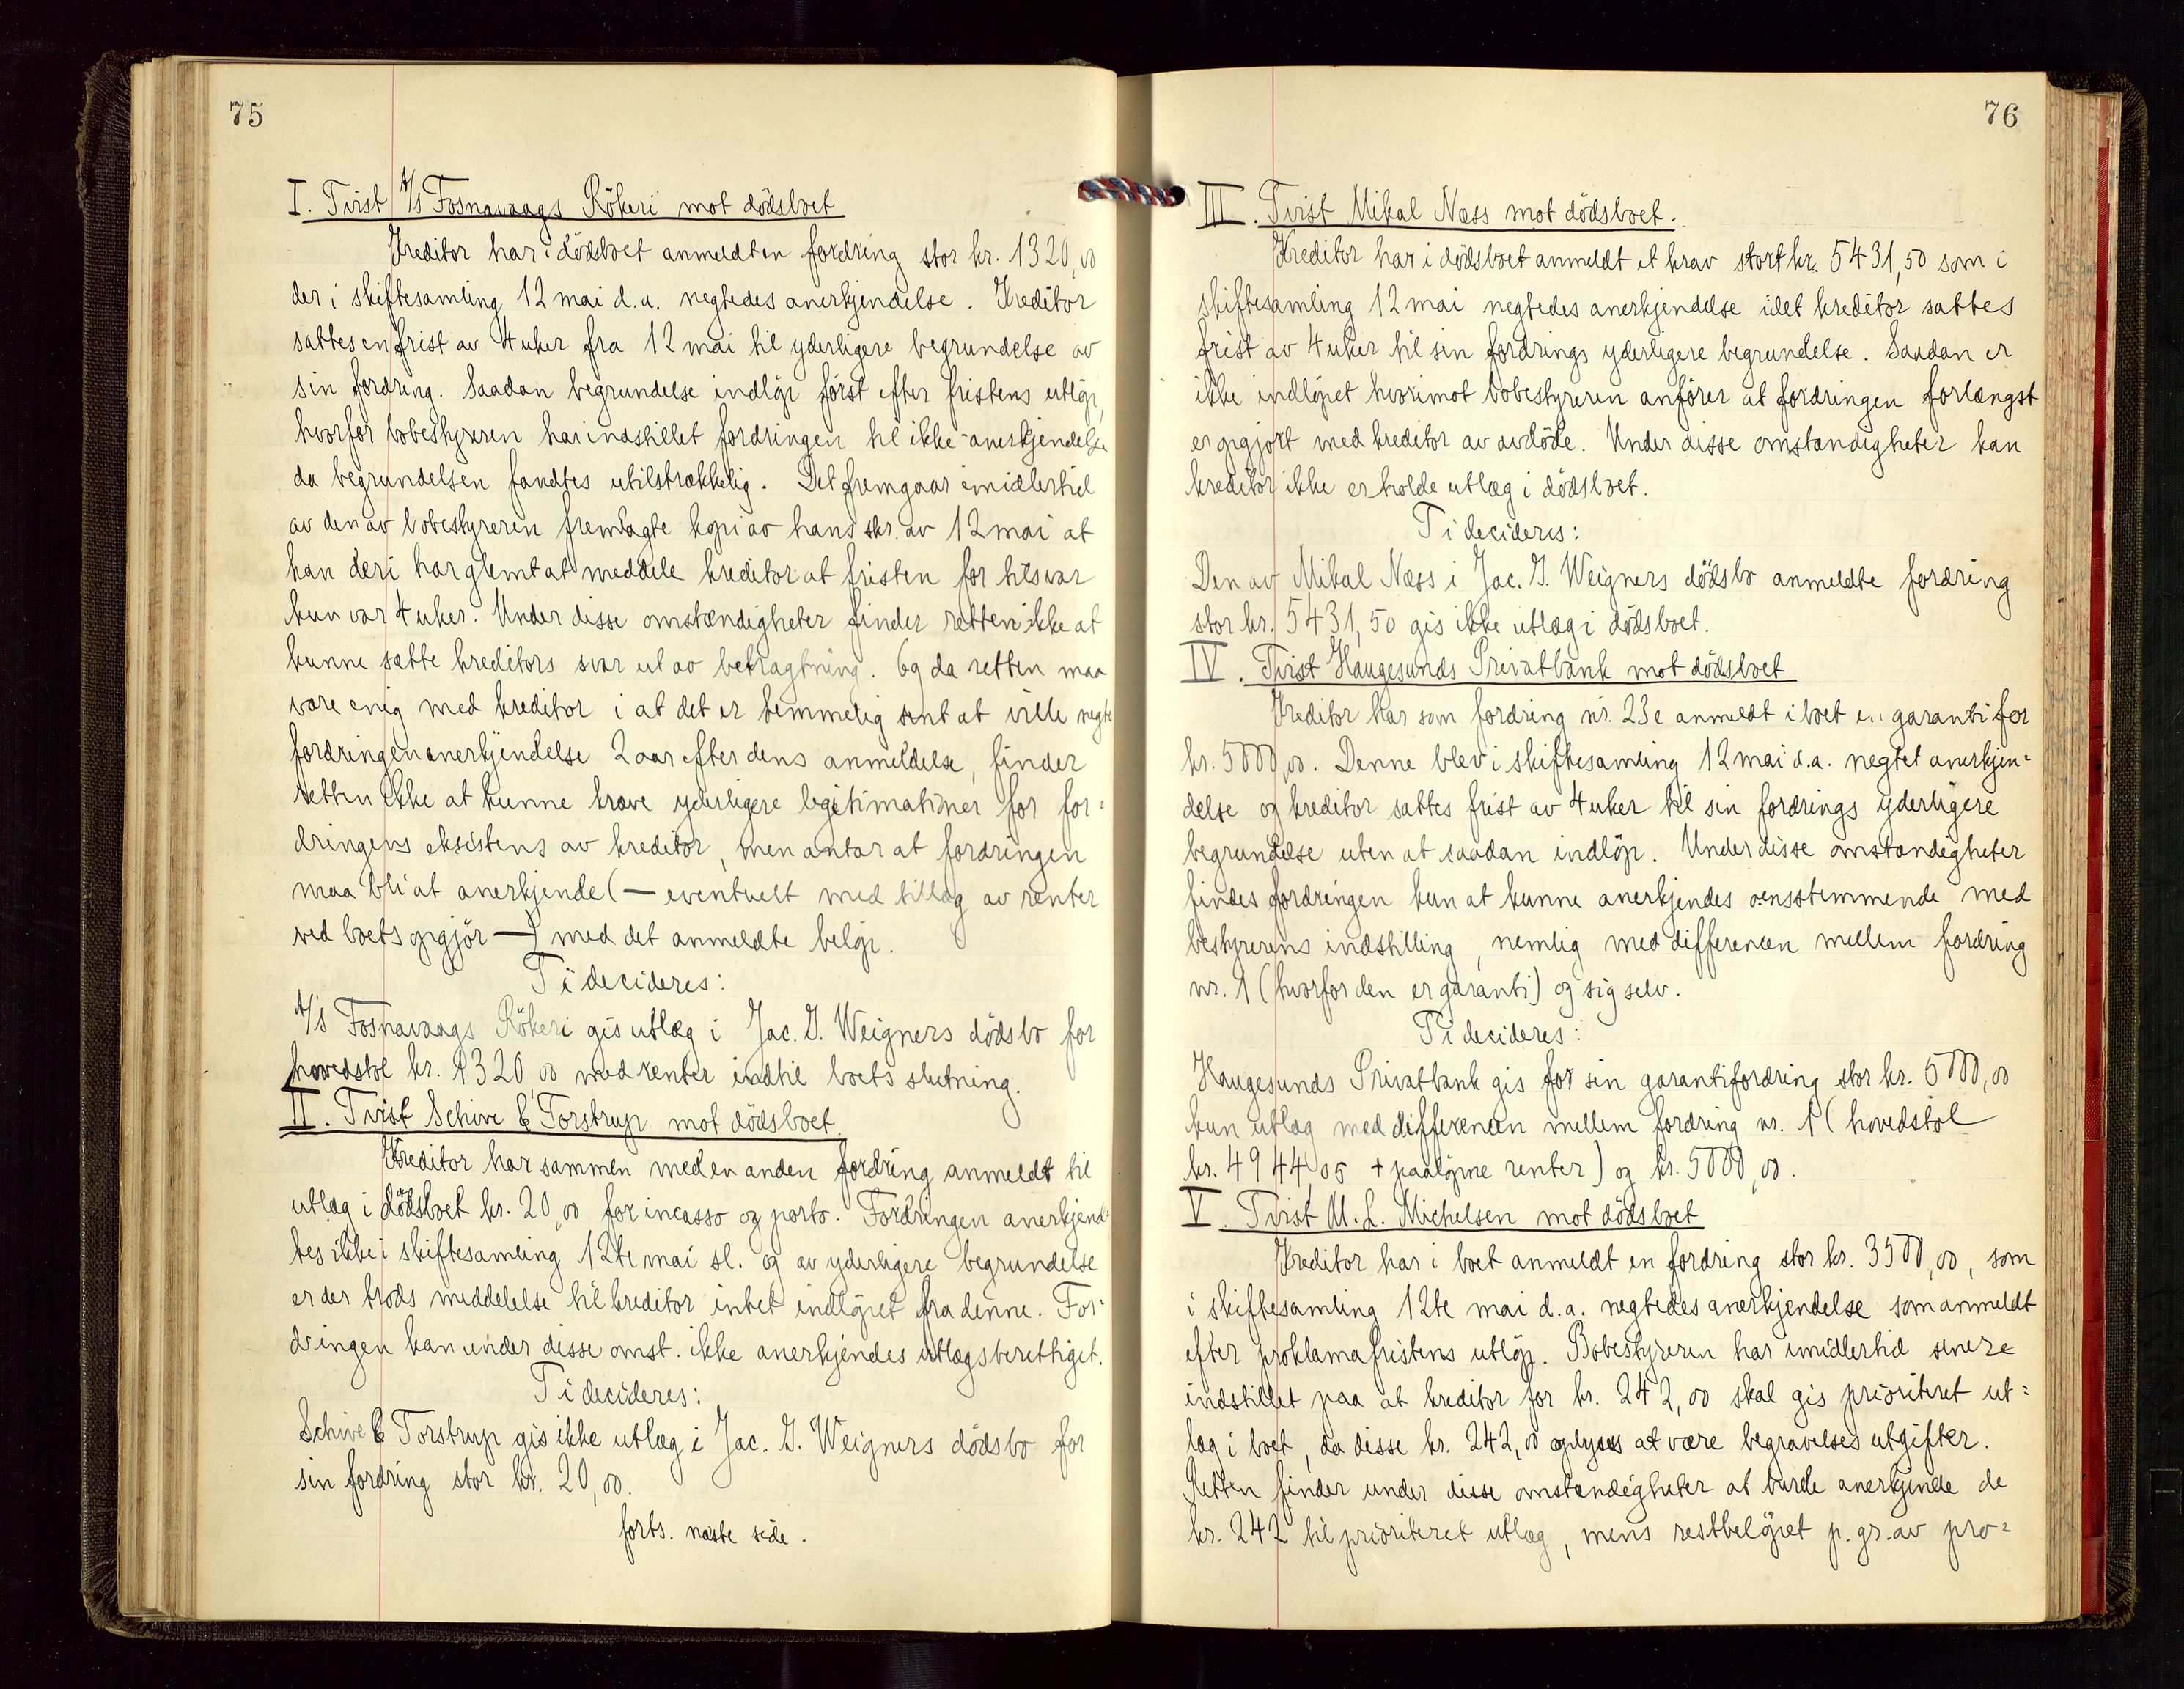 75
I. Tvist A/S Fosnavaags Rökeri mot dödsboet
Kreditor har i dödsboet anmeldt en fordring stor kr. 1320,00
der i skiftesamling 12 mai d.a. negtedes anerkjendelse. Kreditor
sattes en frist av 4 uker fra 12 mai til yderligere begrundelse av
sin fordring. Saadan begrundelse indlöp först efter fristens utlöp,
hvorfor bobestyreren har indstillet fordringen til ikke-anerkjendelse
da begrundelsen fandtes utilstrækkelig. Det fremgaar imidlertid
av den av bobestyreren fremlagte kopi av hans skr. av 12 mai at
han deri har glemt at meddele kreditor at fristen for tilsvar
kun var 4 uker. Under disse omstændigheter finder retten ikke at
kunne sætte kreditors svar ut av betragtning. Og da retten maa
være enig med kreditor i at det er temmelig sent at ville negte
fordringen anerkjendelse 2 aar efter dens anmeldelse, finder
retten ikke at kunne kræve yderligere legitimationer for for=
dringens eksistens av kreditor, men antar at fordringen
maa bli at anerkjende (— eventuelt med tillæg av renter
ved boets opgjör —) med det anmeldte belöp.
Ti decideres:
A/S Fosnavaags Rökeri gis utlæg i Jac. G. Weigners dödsbo for
hovedstol kr. 1320,00 med renter indtil boets slutning.
II. Tvist Schive & Torstrup mot dödsboet.
Kreditor har sammen med en anden fordring anmeldt til
utlæg i dödsboet kr. 20,00 for incasso og porto. Fordringen anerkjend=
tes ikke i skiftesamling 12te mai sl. og av yderligere begrundelse
er der trods meddelelse til kreditor intet indlöpet fra denne. For=
dringen kan under disse omst. ikke anerkjendes utlægsberettiget.
Ti decideres:
Schive & Torstrup gis ikke utlæg i Jac. G. Weigners dödsbo for
sin fordring stor kr. 20,00.
forts. næste side.
76
III. Tvist Mikal Næss mot dödsboet.
Kreditor har i dödsboet anmeldt et krav stort kr. 5431,50 som i
skiftesamling 12 mai negtedes anerkjendelse idet kreditor sattes
frist av 4 uker til sin fordrings yderligere begrundelse. Saadan er
ikke indlöpet hvorimot bobestyreren anförer at fordringen forlængst
er opgjort med kreditor av avdöde. Under disse omstændigheter kan
kreditor ikke erholde utlæg i dödsboet.
Ti decideres:
Den av Mikal Næss i Jac. G. Weigners dödsbo anmeldte fordring
stor kr. 5431,50 gis ikke utlæg i dödsboet.
IV. Tvist Haugesunds Privatbank mot dödsboet
Kreditor har som fordring nr. 23e anmeldt i boet en garanti for
kr. 5000,00. Denne blev i skiftesamling 12 mai d.a. negtet anerkjen=
delse og kreditor sattes frist av 4 uker til sin fordrings yderligere
begrundelse uten at saadan indlöp. Under disse omstændigheter
findes fordringen kun at kunne anerkjendes overensstemmende med
bestyrerens indstilling, nemlig med differencen mellem fordring
nr. 1 (hvorfor den er garanti) og sig selv.
Ti decideres:
Haugesunds Privatbank gis for sin garantifordring stor kr. 5000,00
kun utlæg med differencen mellem fordring nr. 1 (hovedstol
kr. 4944,05 + paalöpne renter) og kr. 5000,00.
V. Tvist M. L. Michelsen mot dödsboet
Kreditor har i boet anmeldt en fordring stor kr. 3500,00, som
i skiftesamling 12te mai d.a. negtedes anerkjendelse som anmeldt
efter proklamafristens utlöp. Bobestyreren har imidlertid senere
indstillet paa at kreditor for kr. 242,00 skal gis prioriteret ut=
læg i boet, da disse kr. 242,00 oplyses at være begravelses utgifter.
Retten finder under disse omstændigheter at burde anerkjende de
kr. 242 til prioriteret utlæg, mens restbelöpet p. gr. av pro=